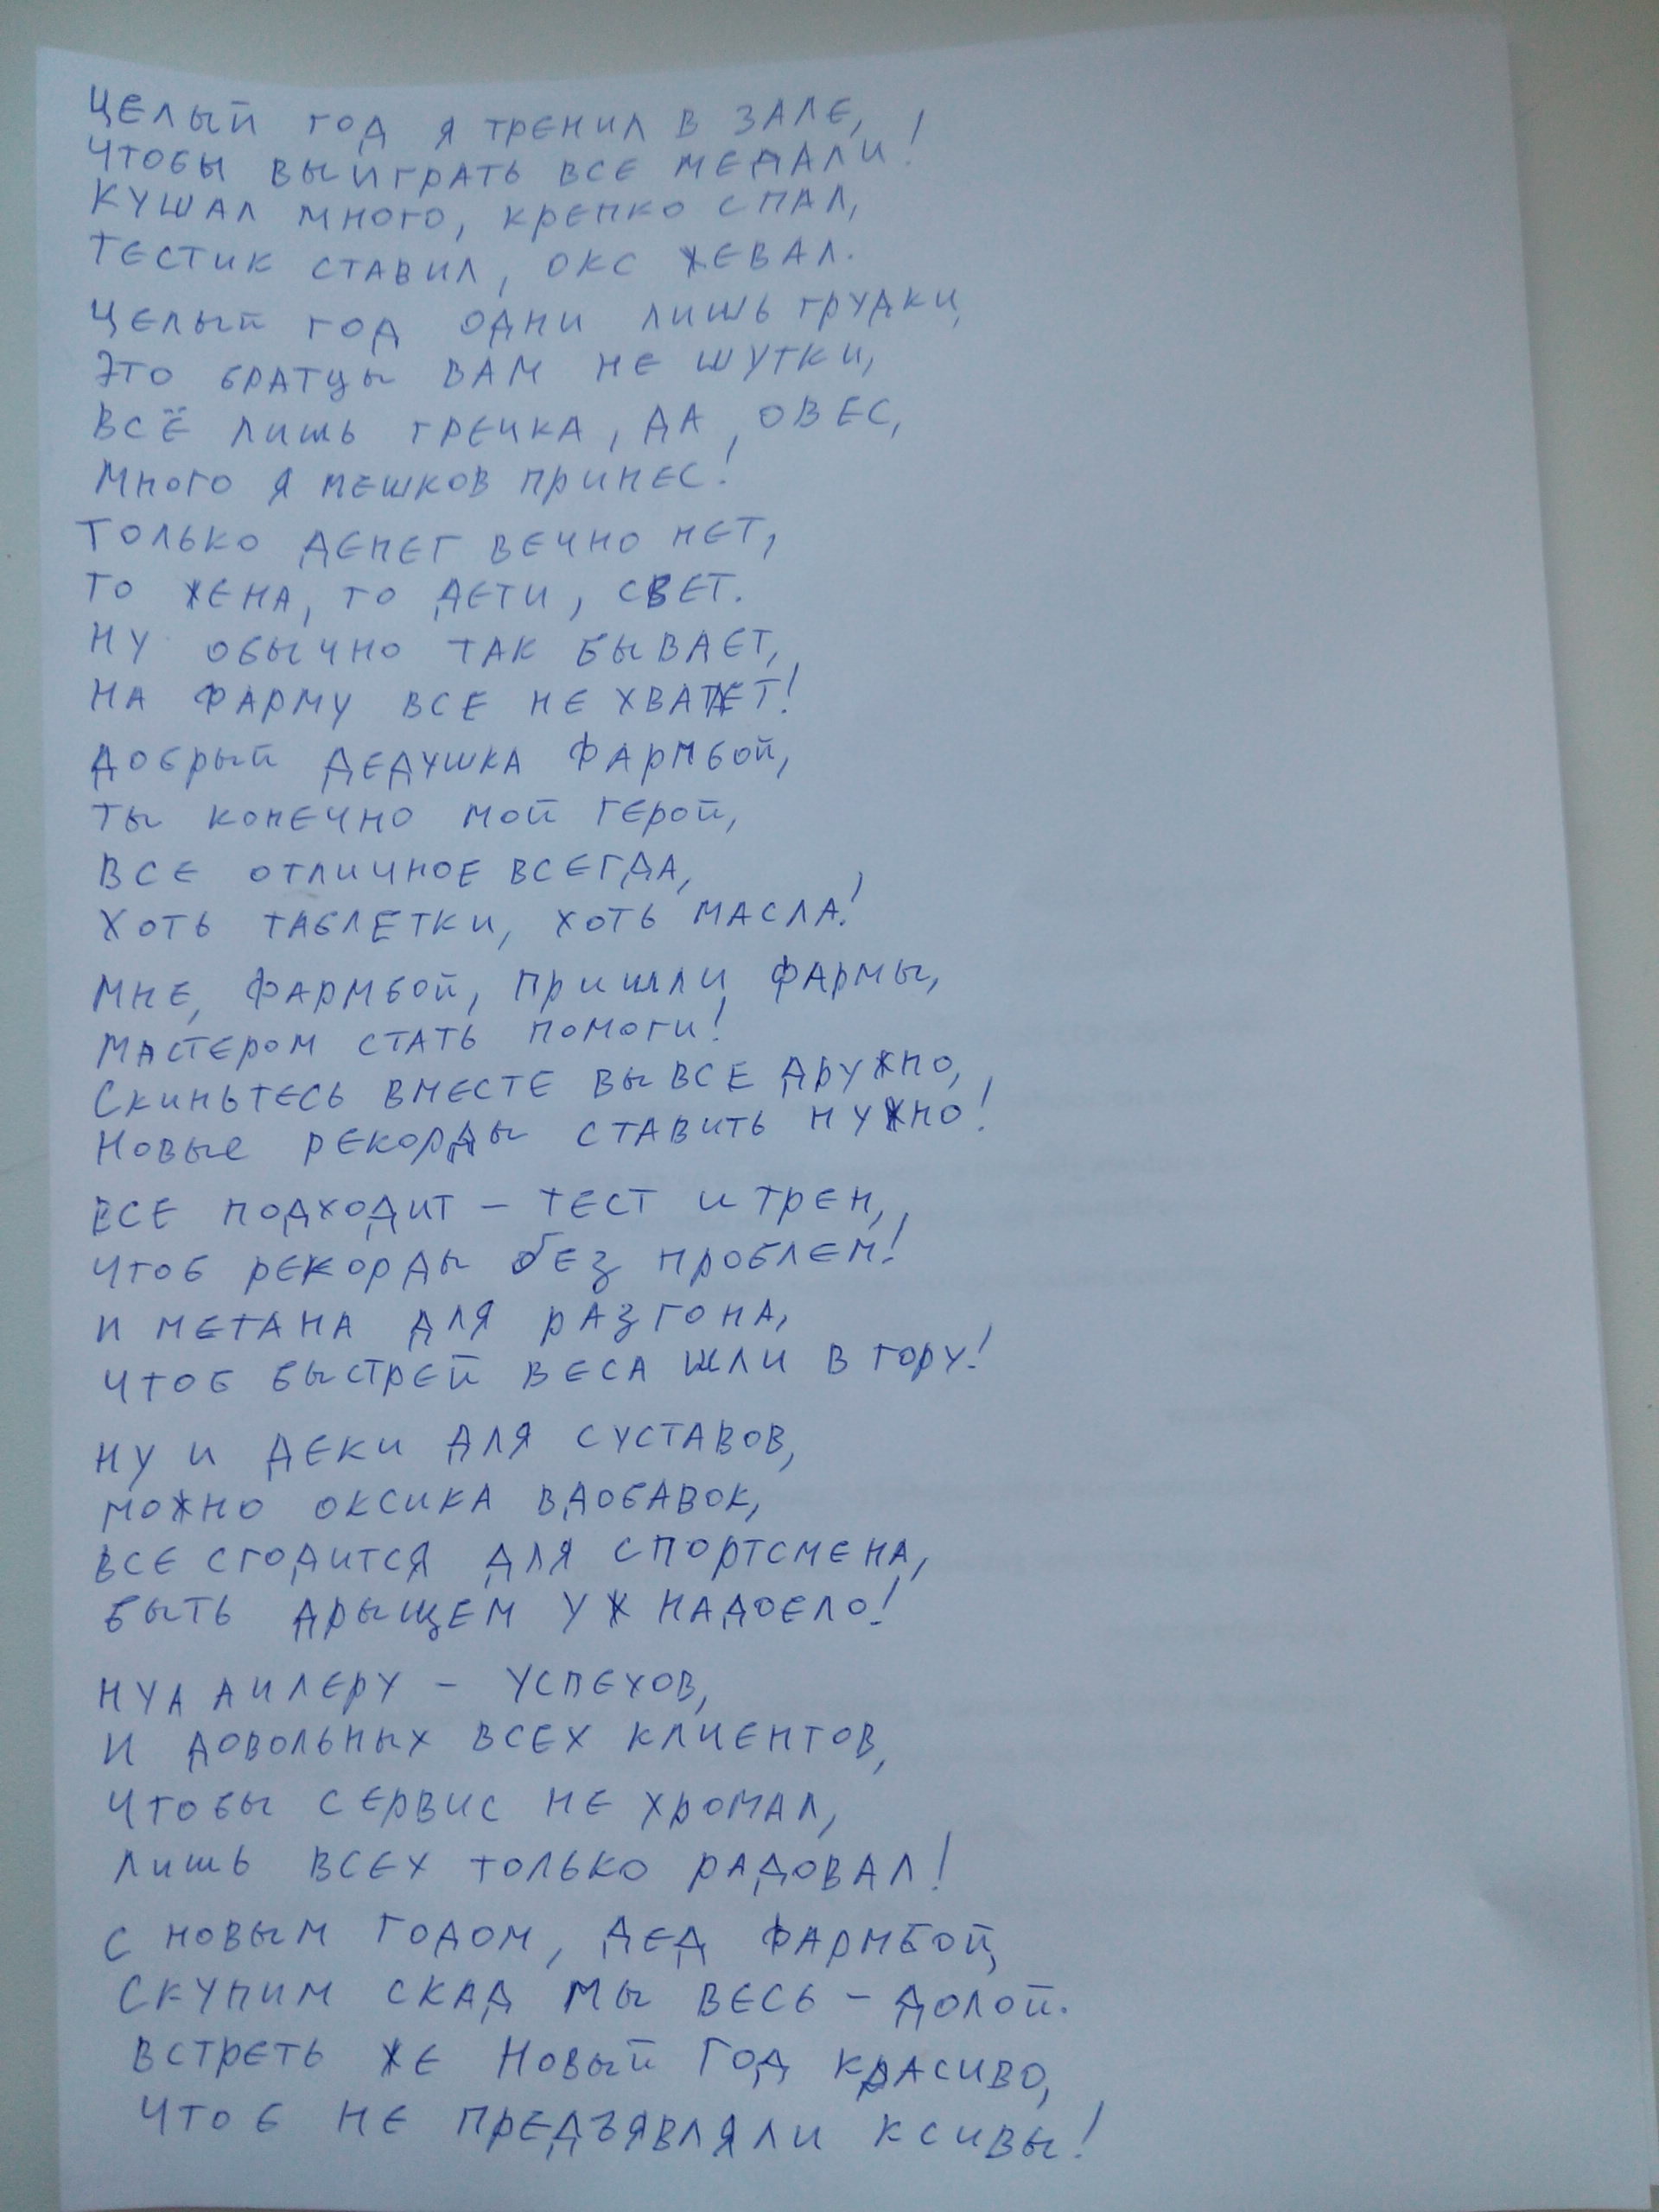 Целый год я тренил в зале,
Чтобы выиграть все медали!
Кушал много, крепко спал,
Тестик ставил, окс жевал.
Целый год одни лишь грудки,
Это братцы вам не шутки,
Всё лишь гречка, да, овес,
Много я мешков принес!
Только денег вечно нет,
То жена, то дети, свет.
Ну обычно так бывает,
На фарму все не хватет!
Добрый дедушка Фармбой,
Ты конечно мой герой,
Все отличное всегда,
Хоть таблетки, хоть масла!
Мне, Фармбой, пришли фармы,
Мастером стать помоги!
Скиньтесь вместе вы все дружно,
Новые рекорды ставить нужно!
Все подходит – тест и трен,
Чтоб рекорды без проблем!
И метана для разгона,
Чтоб быстрей веса шли в гору!
Ну и деки для суставов,
Можно оксика вдобавок,
Все сгодится для спортсмена,
Быть дрыщем уж надоело!
Ну а дилеру – успехов,
И довольных всех клиентов,
Чтобы сервис не хромал,
Лишь всех только радовал!
С новым годом, Дед Фармбой,
Скупим скад мы весь – долой.
Встреть же Новый Год красиво,
Чтоб не предъявляли ксивы!